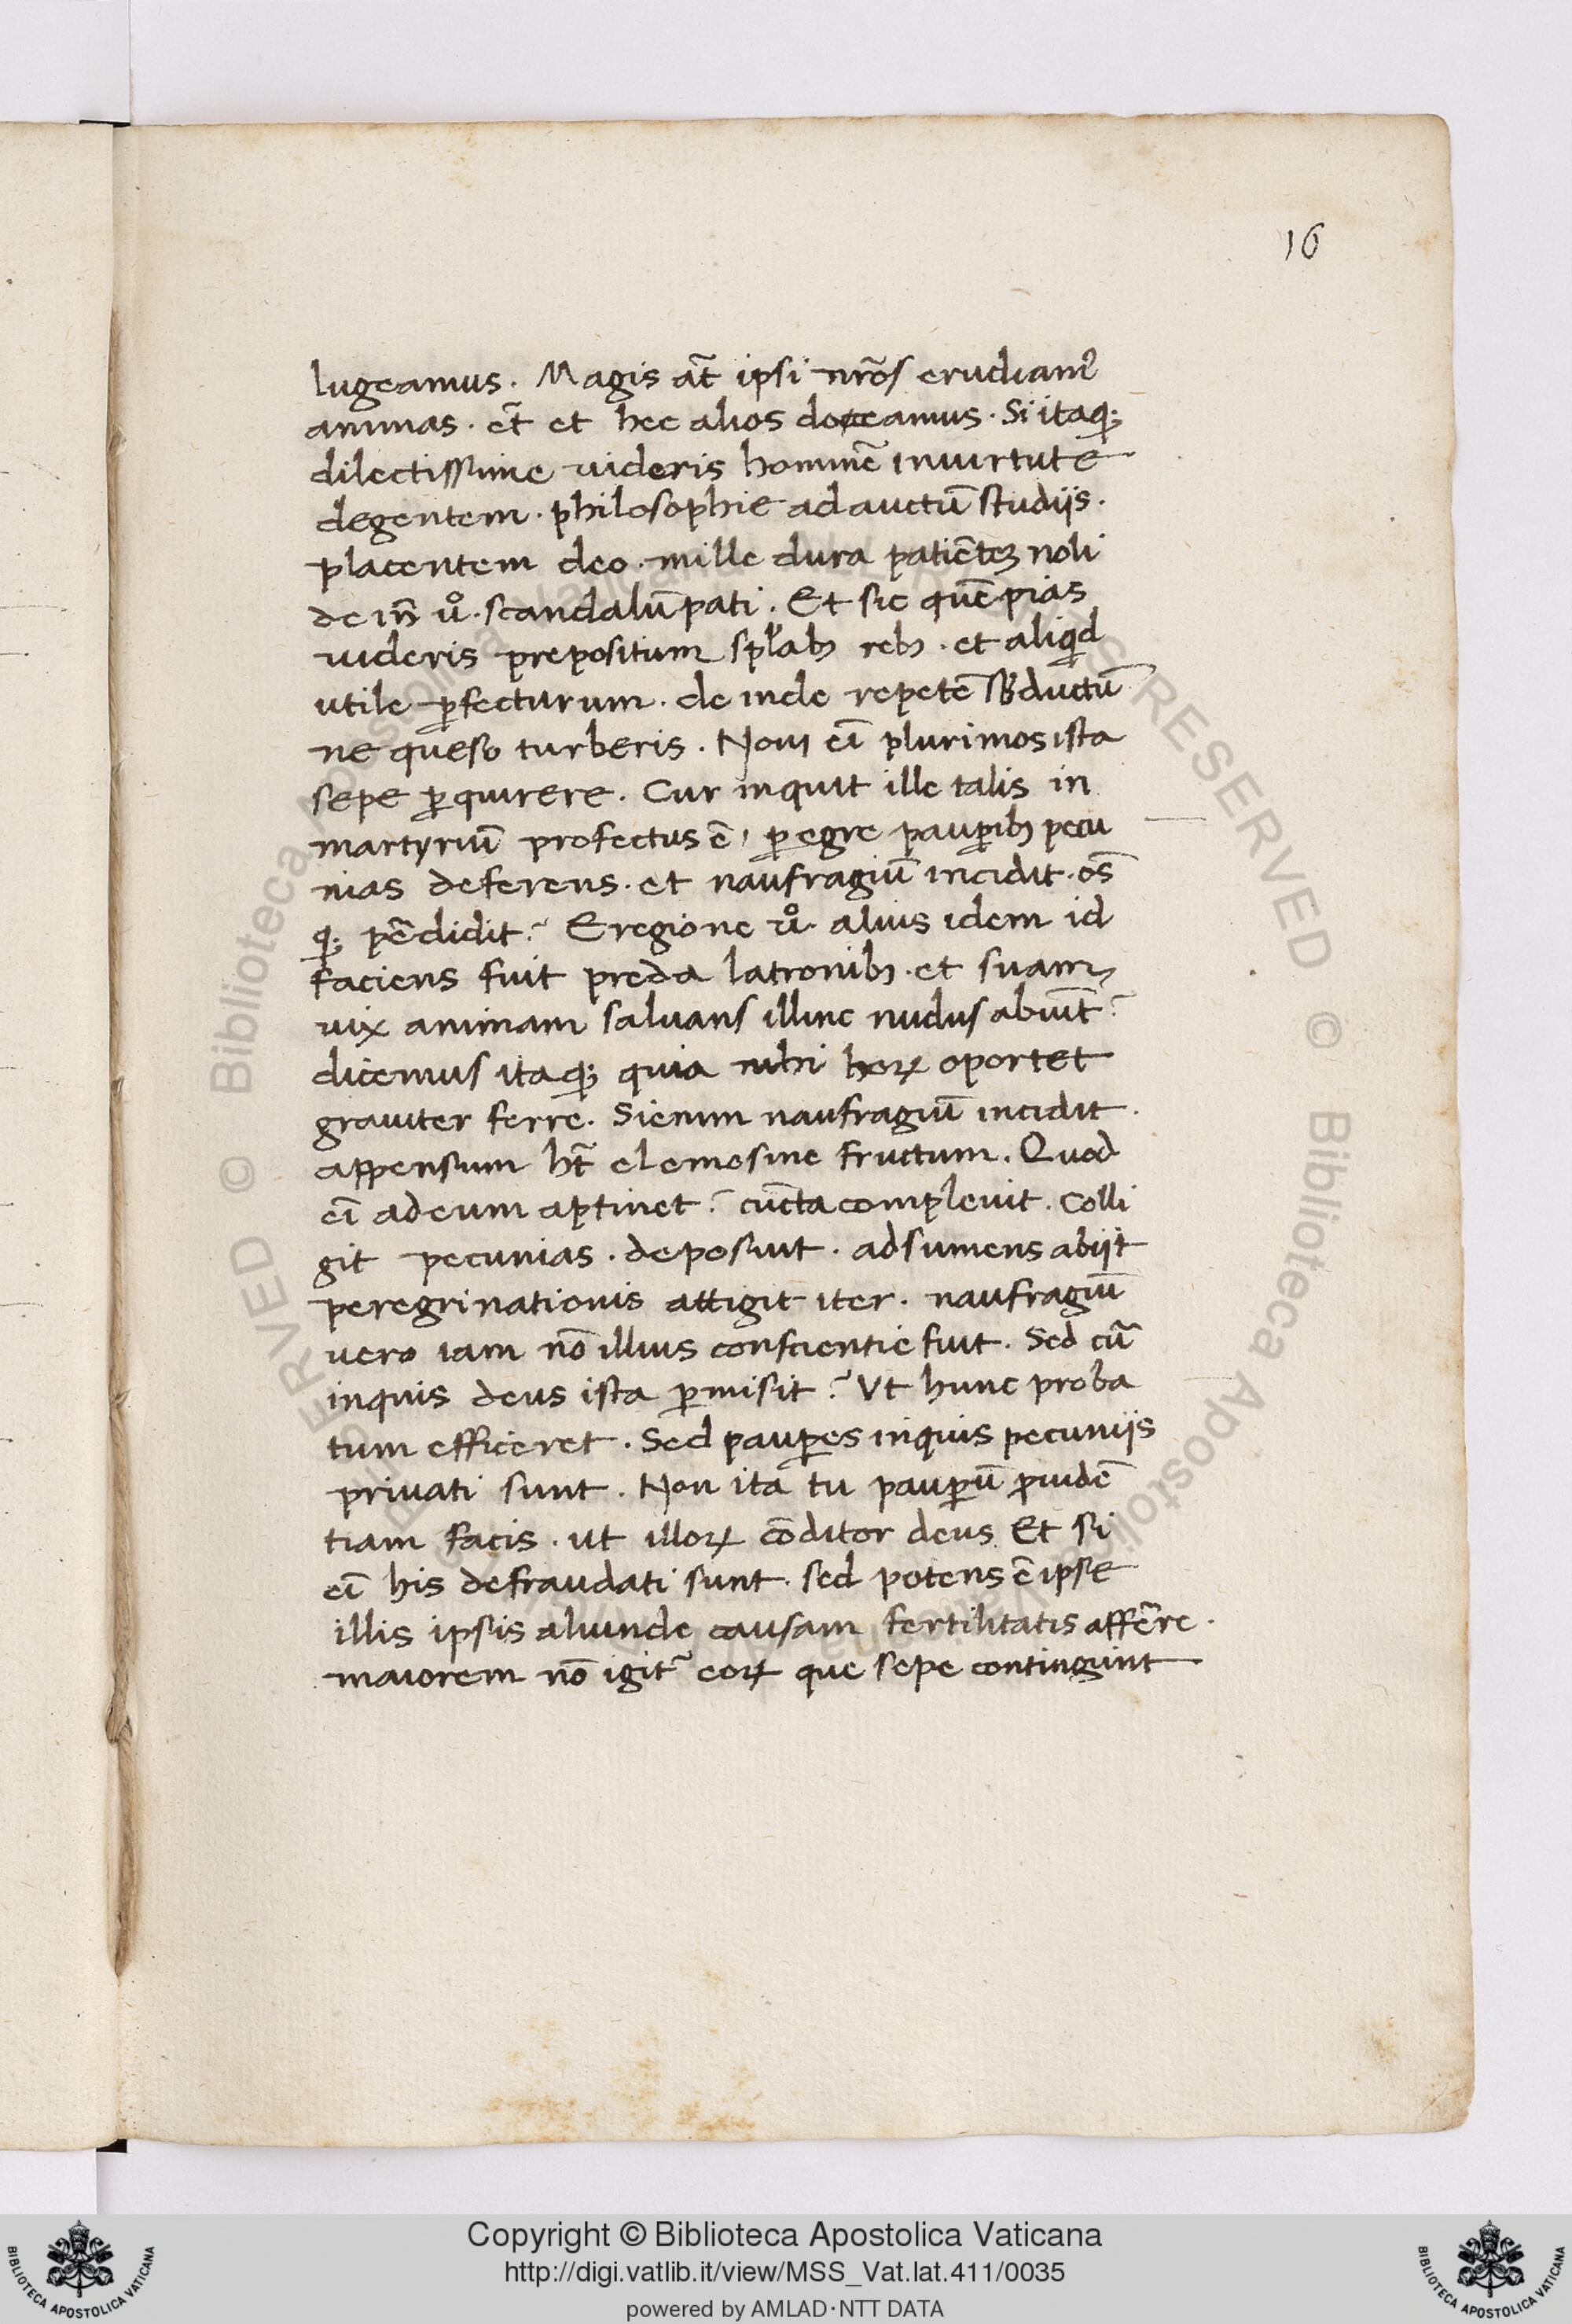 16
lugeamus. Magis at̃ ipsi nr̃os erudiamꝰ
animas. et̃ et hec alios doceamus. Si itaqꝫ
dilectissime uideris hominẽ inuirtute
degentem. philosophie adauctũ studijs.
placentem deo. mille dura patiẽteꝫ noli
de uͦ. scandalũ pati. Et sic quẽpias
uideris prepositum spl̃abꝫ rebꝫ. et aliqͥd
utile ꝓfecturum. de inde repetẽ ductũ
ne queso turberis. Noui eĩ plurimos ista
sepe ꝑquirere. Cur inquit ille talis in
martyriũ profectus ẽ, ꝑegre pauꝑibꝫ pecu
nias deferens. et naufragiũ incidit. os̃
qꝫ pẽdidit? Eregione uͦ alius idem id
faciens fuit preda latronibꝫ. et suam
uix animam saluans illinc nudus abiuit̃?
dicemus itaqꝫ quia nihi hoꝝ oportet
grauiter ferre. Sienim naufragiũ incidit.
appensum ht̃ elemosine fructum. Quod
eĩ adeum aptinet? cũcta compleuit. Colli
git pecunias. deposiuit. adsumens abijt
peregrinationis attigit iter. naufragiũ
vero iam nõ illius conscientie fuit. Sed cũ
inquis deus ista ꝑmisit? Vt hunc proba
tum efficeret. Sed pauꝑes inquis pecunijs
priuati sunt. Non ita tu pauꝑũ ꝓuidẽ
tiam facis. ut illoꝝ cõditor deus. Et si
eĩ his defraudati sunt. sed potens ẽ ipse
illis ipsis aliunde causam fertilitatis affẽre.
maiorem nõ igit̃ eoꝝ que sepe contingunt
Copyright © Biblioteca Apostolica Vaticana
http://digi.vatlib.it/view/MSS_Vat.lat.411/0035
powered by AMLAD·NTT DATA